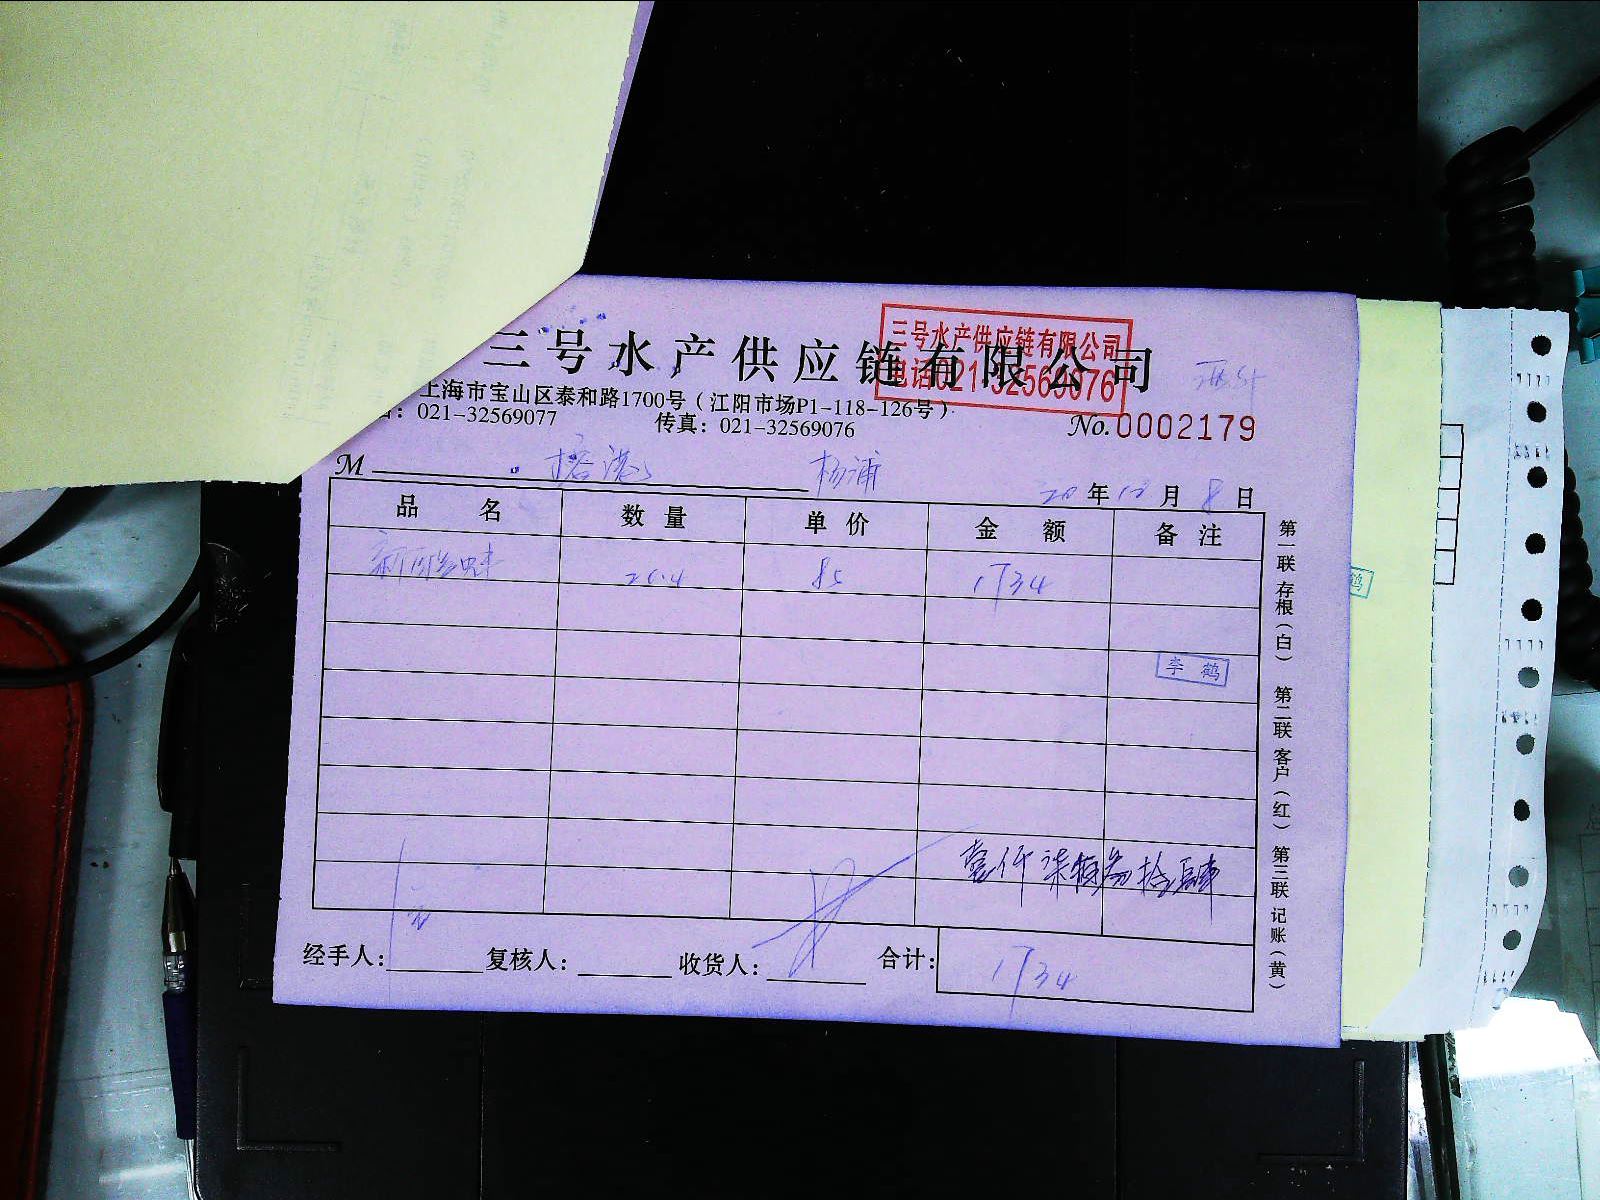 三号水产供应链有限公司
三号水产供应链有限公司
电话021-32569076
上海市宝山区泰和路1700号（江阳市场P1-118-126号）
：021-32569077 传真：021-32569076
No.0002179
M 榕港 杨浦 20年12月8日
品名 数量 单价 金额 备注
20.4 85 1734
李鹤
鹤
壹仟柒佰叁拾肆
经手人： 复核人： 收货人： 合计： 1734
第一联存根（白） 第二联客户（红） 第三联记账（黄）